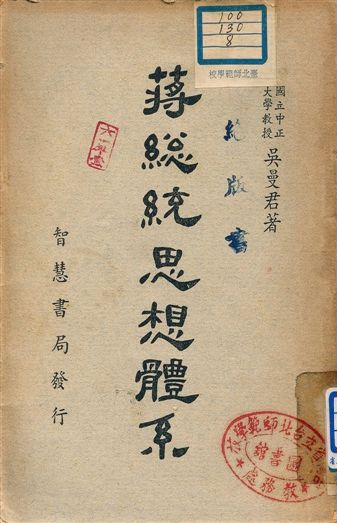 100
130
8
校學範師北臺
國立中正
大學教授
吳曼君著
絕版書
蔣総統思想體系
智慧書局發行
校學範師北台立省
館書圖
處務教